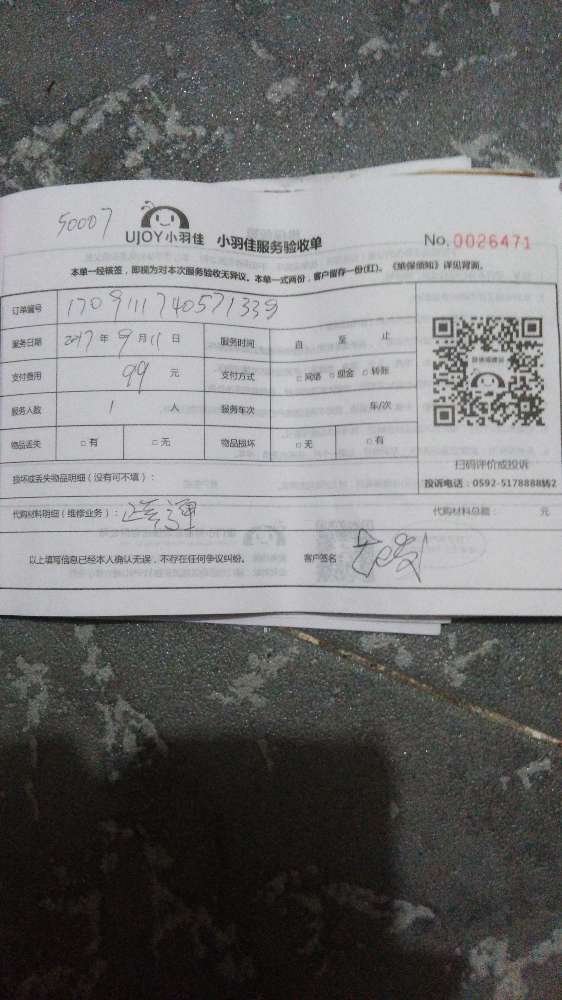 50007
UJOY小羽佳 小羽佳服务验收单 No.0026471
本单一经核签,即视为对本次服务验收无异议。本单一式两份,客户留存一份(红)。《维保须知》详见背面。
订单编号 1709111740571339
服务日期 2017年9月11日 服务时间 自 至 止
支付费用 99 元 支付方式 □网络 □现金 □转账
服务人数 1 人 服务车次 车/次
物品丢失 □有 □无 物品损坏 □无 □有
扫码评价或投诉
损坏或丢失物品明细(没有可不填):
投诉电话:0592-5178888转2
代购材料明细(维修业务): 代购材料总额: 元
以上填写信息已经本人确认无误,不存在任何争议纠纷。 客户签名: